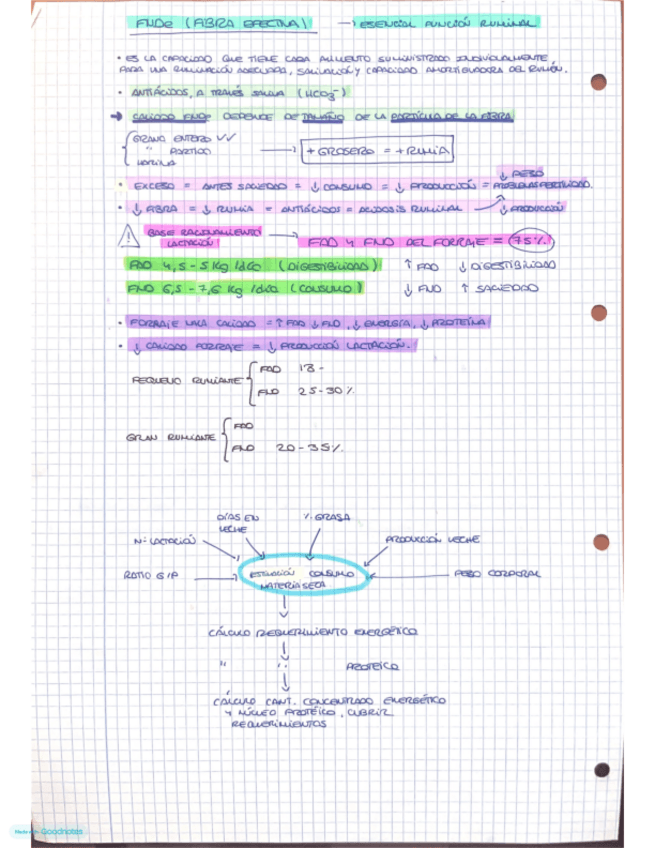 FNDe (FIBRA EFECTIVA) → ESENCIAL FUNCIÓN RUMINAL
• ES LA CAPACIDAD QUE TIENE CADA ALIMENTO SUMINISTRADO INDIVIDUALMENTE
PARA UNA RUMINACIÓN ADECUADA, SALIVACIÓN Y CAPACIDAD AMORTIGUADORA DEL RUMEN.
• ANTIÁCIDOS, A TRAVÉS SALIVA (HCO3-)
→ CALIDAD FNDe DEPENDE DE TAMAÑO DE LA PARTÍCULA DE LA FIBRA
GRANO ENTERO ✓✓
" PARTIDO → + GROSERO = + RUMIA
HARINA
↓ PESO
• EXCESO = ANTES SACIEDAD = ↓ CONSUMO = ↓ PRODUCCIÓN = PROBLEMAS FERTILIDAD.
• ↓ FIBRA = ↓ RUMIA = ANTIÁCIDOS = ACIDOSIS RUMINAL → ↓ PRODUCCIÓN
BASE RACIONAMIENTO
LACTACIÓN → FAD Y FND DEL FORRAJE = 75%
FAD 4,5-5 Kg/día (DIGESTIBILIDAD) ↑ FAD ↓ DIGESTIBILIDAD
FND 6,5-7,6 Kg/día (CONSUMO) ↓ FND ↑ SACIEDAD
• FORRAJE MALA CALIDAD = ↑ FAD ↓ FND, ↓ ENERGÍA, ↓ PROTEÍNA
• ↓ CALIDAD FORRAJE = ↓ PRODUCCIÓN LACTACIÓN.
FAD 18-
PEQUEÑO RUMIANTE
FND 25-30%
FAD
GRAN RUMIANTE
FND 20-35%
DÍAS EN
LECHE
% GRASA
Nº LACTACIÓN
PRODUCCIÓN LECHE
RATIO G/P
ESTIMACIÓN CONSUMO
MATERIA SECA
PESO CORPORAL
CÁLCULO REQUERIMIENTO ENERGÉTICO
" " PROTEICO
CÁLCULO CANT. CONCENTRADO ENERGÉTICO
Y NÚCLEO PROTÉICO, CUBRIR
REQUERIMIENTOS
Goodnotes